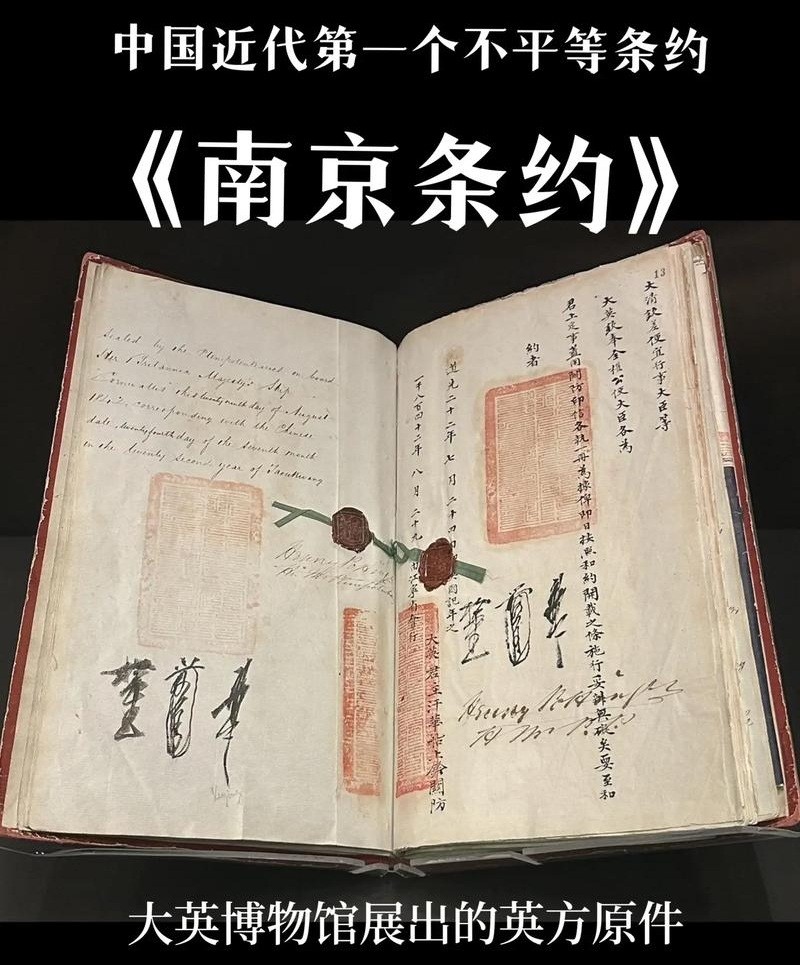 中国近代第一个不平等条约
《南京条约》
Sealed by the Plenipotentiaries on board
Her Britannic Majesty's Ship
Cornwallis this twenty ninth day of August
1842, corresponding with the Chinese
date, twenty fourth day of the seventh month
in the twenty second year of Taoukwang
13
大清欽差便宜行事大臣等
大英欽奉全權公使大臣各為
君上定事蓋用關防印信各執一冊為據俾即日按照和約開載之條施行妥辦無礙矣要至和
約者
道光二十二年七月二十四日即英國記年之
一千八百四十二年八月二十九日由江寧省會行
大英君主汗華船上鈐關防
大英博物馆展出的英方原件